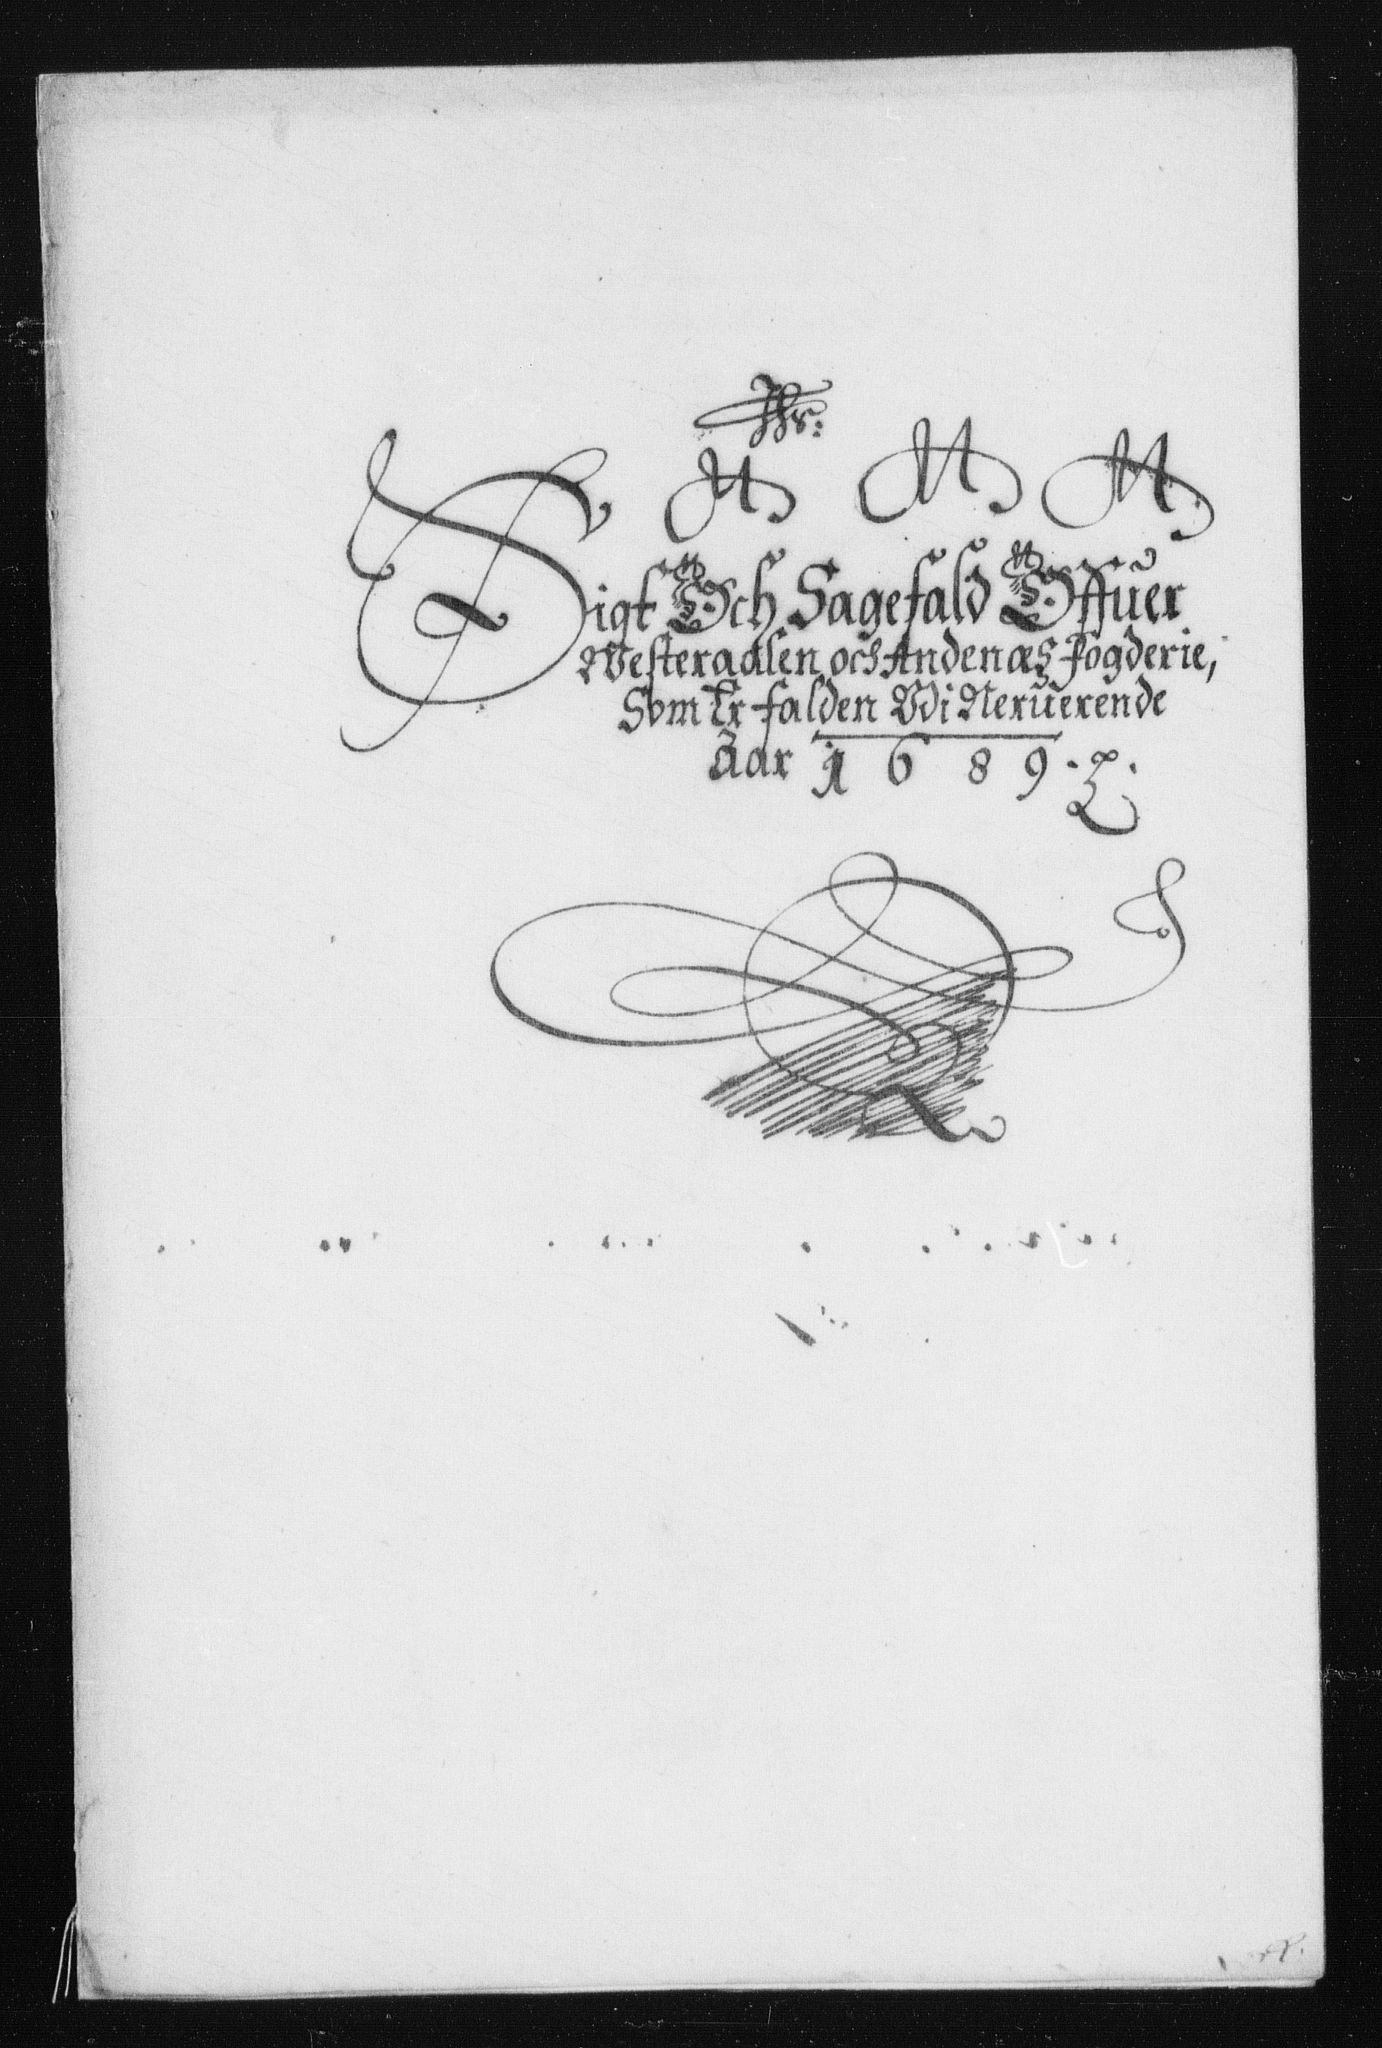 Sigt Och Sagefald Offuer
Vesteraalen och Andenæs fogderie,
Som Er falden Vdi Neruerende
Aar 1689.